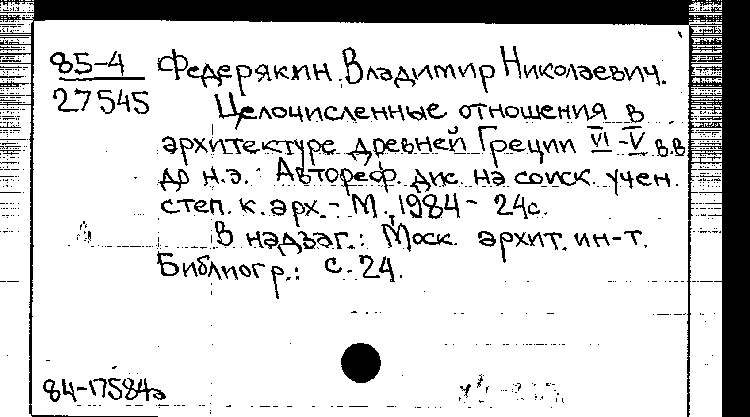 85-4 Федерякин, Владимир Николаевич.
27545 Целочисленные отношения в
архитектуре древней Греции VI-V в.в
до н.э.: Автореф. дис. на соиск. учен.
степ. к. арх. - М., 1984 - 24с.
В надзаг.: Моск. архит. ин-т.
Библиогр.: с. 24.
84-17584а